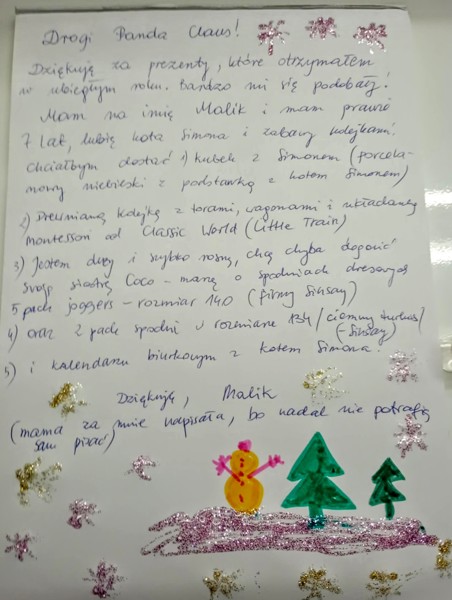 Drogi Panda Claus!
Dziękuję za prezenty, które otrzymałem
w ubiegłym roku. Bardzo mi się podobały!
Mam na imię Malik i mam prawie
7 lat, lubię kota Simona i zabawy kolejkami.
Chciałbym dostać 1) kubek z Simonem (porcela-
nowy niebieski z podstawką z kotem Simonem)
2) Drewnianą kolejkę z torami, wagonami i układankę
montessori od Classic World (Little Train)
3) Jestem duży i szybko rosnę, chcę chyba dogonić
swoją siostrę Coco - marzę o spodniach dresowych
5 pack joggers - rozmiar 140 (firmy Sinsay)
4) oraz 2 pack spodni w rozmiarze 134 / ciemny turkus /
(- Sinsay)
5) i kalendarzu biurkowym z kotem Simona.
Dziękuję, Malik
(mama za mnie napisała, bo nadal nie potrafię
sam pisać)